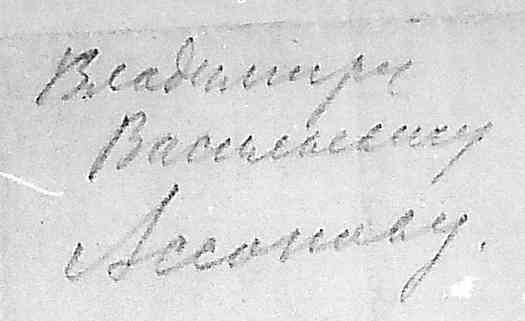 Владимиру
Васильевичу
Ассонову.